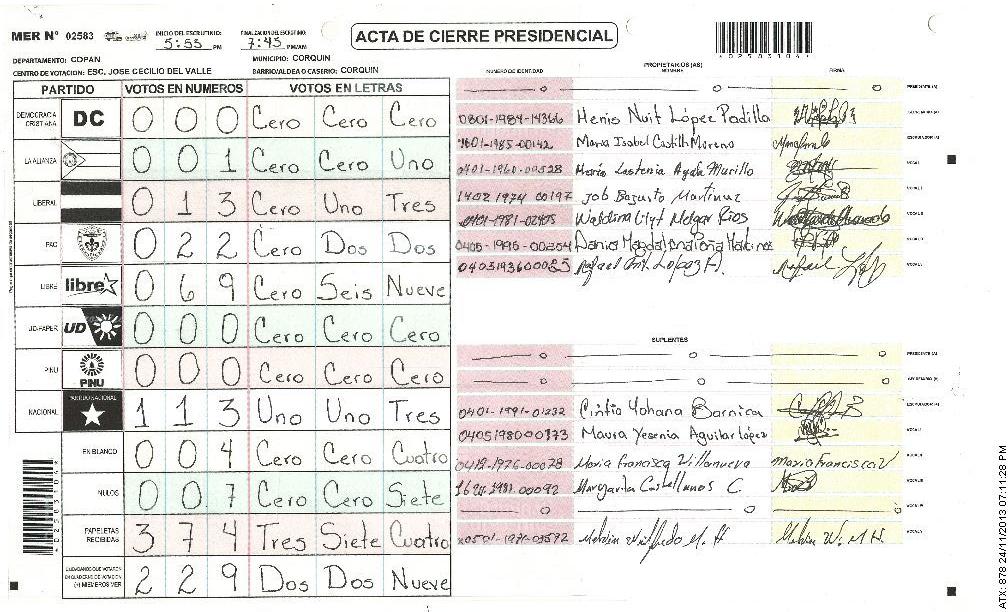 MER N° 02583 INICIO DEL ESCRUTINIO: 5:55 PM FINALIZACION DEL ESCRUTINIO: 7:45 PM/AM
ACTA DE CIERRE PRESIDENCIAL
DEPARTAMENTO: COPAN MUNICIPIO: CORQUIN
CENTRO DE VOTACION: ESC. JOSE CECILIO DEL VALLE BARRIO/ALDEA O CASERIO: CORQUIN
PARTIDO VOTOS EN NUMEROS VOTOS EN LETRAS
DEMOCRACIA CRISTIANA DC 0 0 0 Cero Cero Cero
LA ALIANZA 0 0 1 Cero Cero Uno
LIBERAL 0 1 3 Cero Uno Tres
PAC 0 2 2 Cero Dos Dos
LIBRE libre 0 6 9 Cero Seis Nueve
UD-FAPER UD 0 0 0 Cero Cero Cero
PINU PINU 0 0 0 Cero Cero Cero
NACIONAL PARTIDO NACIONAL 1 1 3 Uno Uno Tres
EN BLANCO 0 0 4 Cero Cero Cuatro
NULOS 0 0 7 Cero Cero Siete
PAPELETAS RECIBIDAS 3 7 4 Tres Siete Cuatro
CIUDADANOS QUE VOTARON EN CUADERNO DE VOTACION (+) MIEMBROS MER 2 2 9 Dos Dos Nueve
PROPIETARIOS (AS)
NUMERO DE IDENTIDAD NOMBRE FIRMA
PRESIDENTE (A)
0801-1984-14366 Henis Nuit López Padilla
1601-1985-00142 Maria Isabel Castillo Moreno
0401-1960-00528 Maria Lastenia Ayala Murillo
1402 1974 00197 Job Basurto Martinez
0401-1981-02405 Melgar Rios
Dania Magdalena
0403193600025 Rafael
SUPLENTES
PRESIDENTE (A)
SECRETARIO (A)
0401-1991-01232 Cintia Yohana Barnica
0405198000173 Maura Yesenia Aguilar López
0412-1976-00078 Maria Francisca Villanueva Maria Francisca V
Margarita Castellanos C.
0501-1971-03592 Melvin Wilfredo M. H Melvin W. M H
ATX: 878 24/11/2013 07:11:28 PM